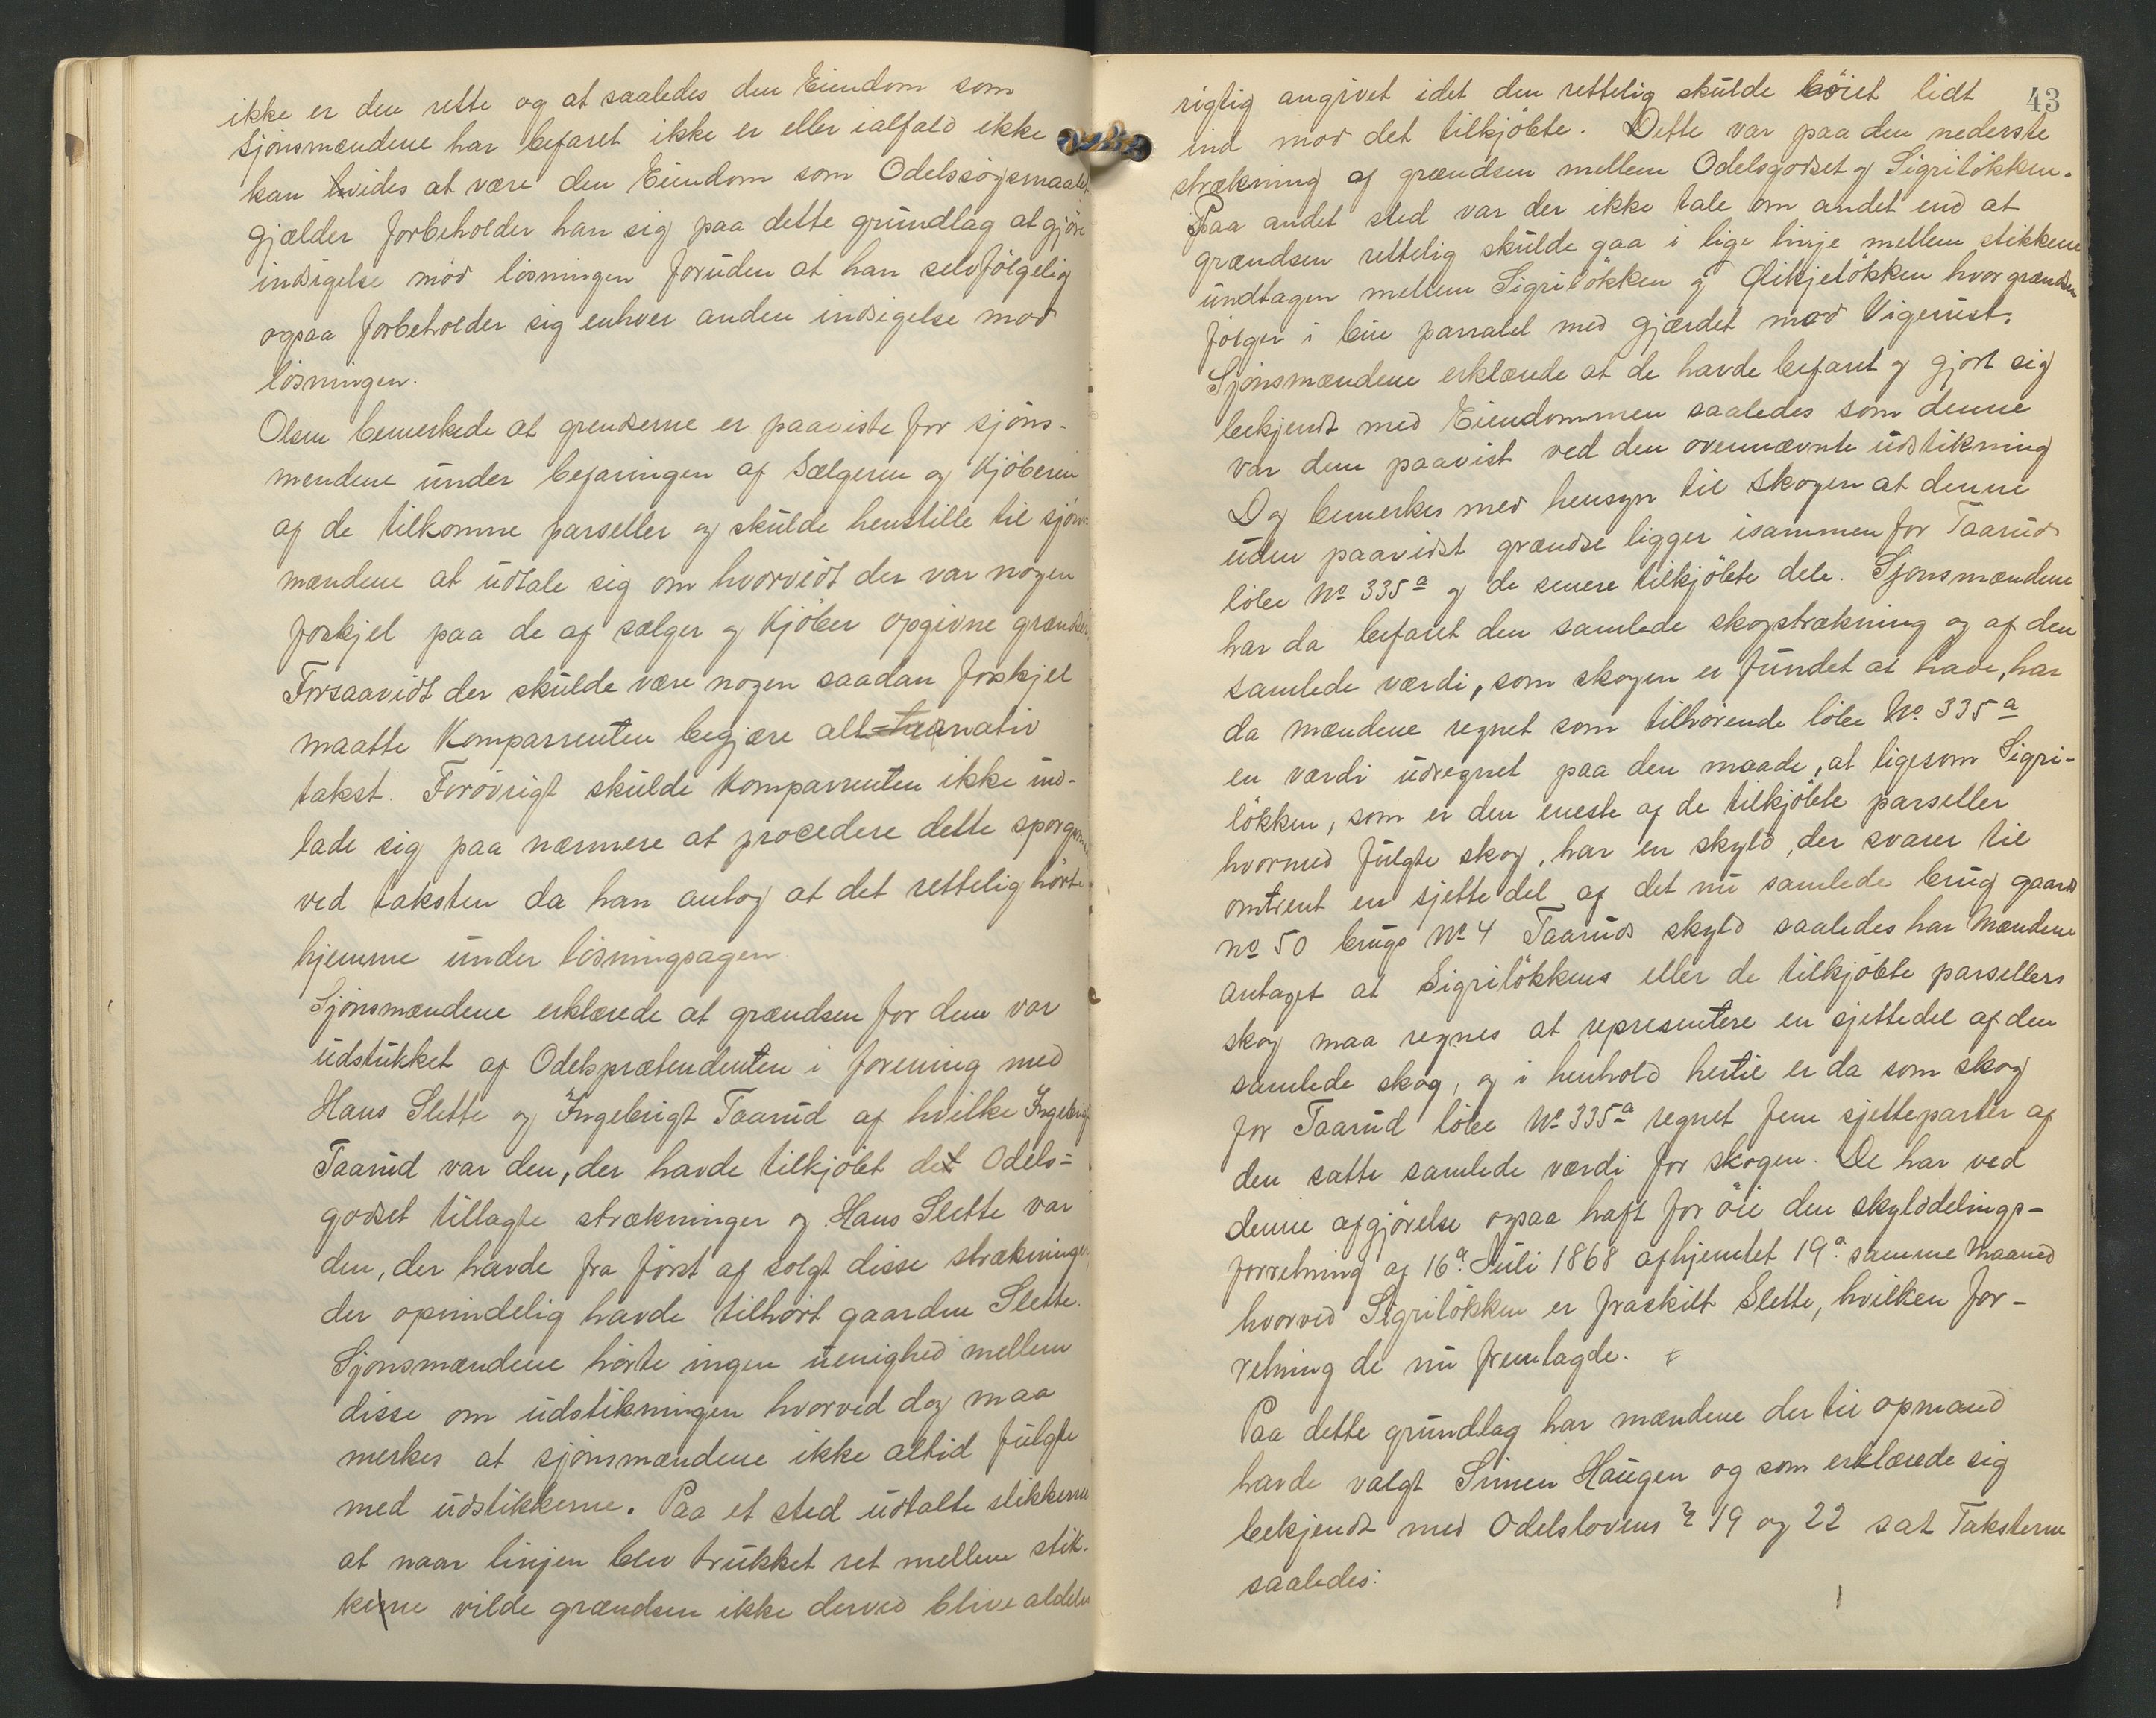 ikke er den rette og at saaledes den Eiendom som
sjönsmændene har befaret ikke er eller ialfald ikke
kan vides at være den Eiendom som Odelssögsmaalet
gjælder forbeholder han sig paa dette grundlag at gjöre
indsigelse mod lösningen foruden at han selvfölgelig
ogsaa forbeholder sig enhver anden indsigelse mod
lösningen.
Olsen bemerkede at grenserne er paaviste for sjöns-
mendene under befaringen af Sælgeren og Kjöberen
af de tilkomne parseller og skulde henstille til sjöns-
mændene at udtale sig om hvorvidt der var nogen
forskjel paa de af sælger og Kjöber opgivne grændser
Forsaavidt der skulde være nogen saadan forskjel
maatte Komparenten begjære alternativ
takst. Forövrigt skulde Komparenten ikke ind-
lade sig paa nærmere at procedere dette spörgsm
ved taksten da han antog at det rettelig hörte
hjemme under lösningsagen.
Sjönsmændene erklærede at grændsen for dem var
udstukket af Odelsprætendenten i forening med
Hans Slette og Ingebrigt Taarud af hvilke Ingebrigt
Taarud var den, der havde tilkjöbt det Odels-
godset tillagte strækninger og Hans Slette var
den, der havde fra först af solgt disse strækninger
der oprindelig havde tilhört gaarden Slette.
Sjönsmændene hörte ingen uenighed mellem
disse om udstikningen hvorved dog maa
merkes at sjönsmændene ikke altid fulgte
med udstikkerne. Paa et sted udtalte stikkerne
at naar linjen blev trukket ret mellem stik-
kerne vilde grændsen ikke derved blive aldeles
43
rigtig angivet idet den rettelig skulde böiet lidt
ind mod det tilkjöbte. Dette var paa den nederste
strækning af grændsen mellem Odelsgodset og Sigrilökken.
Paa andet sted var der ikke tale om andet end at
grændsen rettelig skulde gaa i lige linje mellem stikkene
undtagen mellem Sigrilökken og hvor grændsen
fölger i bue parralel med gjærdet mod Vigerust.
Sjönsmændene erklærede at de havde befaret og gjort sig
bekjendt med Eiendommen saaledes som denne
var dem paavist ved den ovennævnte udstikning
Dog bemerkes med hensyn til Skogen at denne
uden paavidst grændse ligger isammen for Taaruds
löbe No 335a og de senere tilkjöbte dele. Sjönsmændene
har da befaret den samlede skogstrækning og af den
samlede værdi, som skogen er fundet at have, har
da mændene regnet som tilhörende löbe No 335a
en værdi udregnet paa den maade, at ligesom Sigri-
lökken, som er den eneste af de tilkjöbte parseller
hvormed fulgte skog, har en skyld, der svarer til
omtrent en sjettedel af det nu samlede brug gaards
no 50 brugs No 4 Taaruds skyld saaledes har Mændene
antaget at Sigrilökkens eller de tilkjöbte parsellers
skog maa regnes at representere en sjettedel af den
samlede skog, og i henhold hertil er da som skog
for Taarud löbe No 335a regnet fem sjetteparter af
den satte samlede værdi for skogen. De har ved
denne afgjörelse ogsaa haft for öie den skylddelings-
forretning af 16a. Juli 1868 afhjemlet 19a. samme Maaned
hvorved Sigrilökken er fraskilt Slette, hvilken for-
retning de nu fremlagde.
Paa dette grundlag har mændene der til opmand
havde valgt Simen Haugen og som erklærede sig
bekjendt med Odelslovens § 19 og 22 sat Taksterne
saaledes: